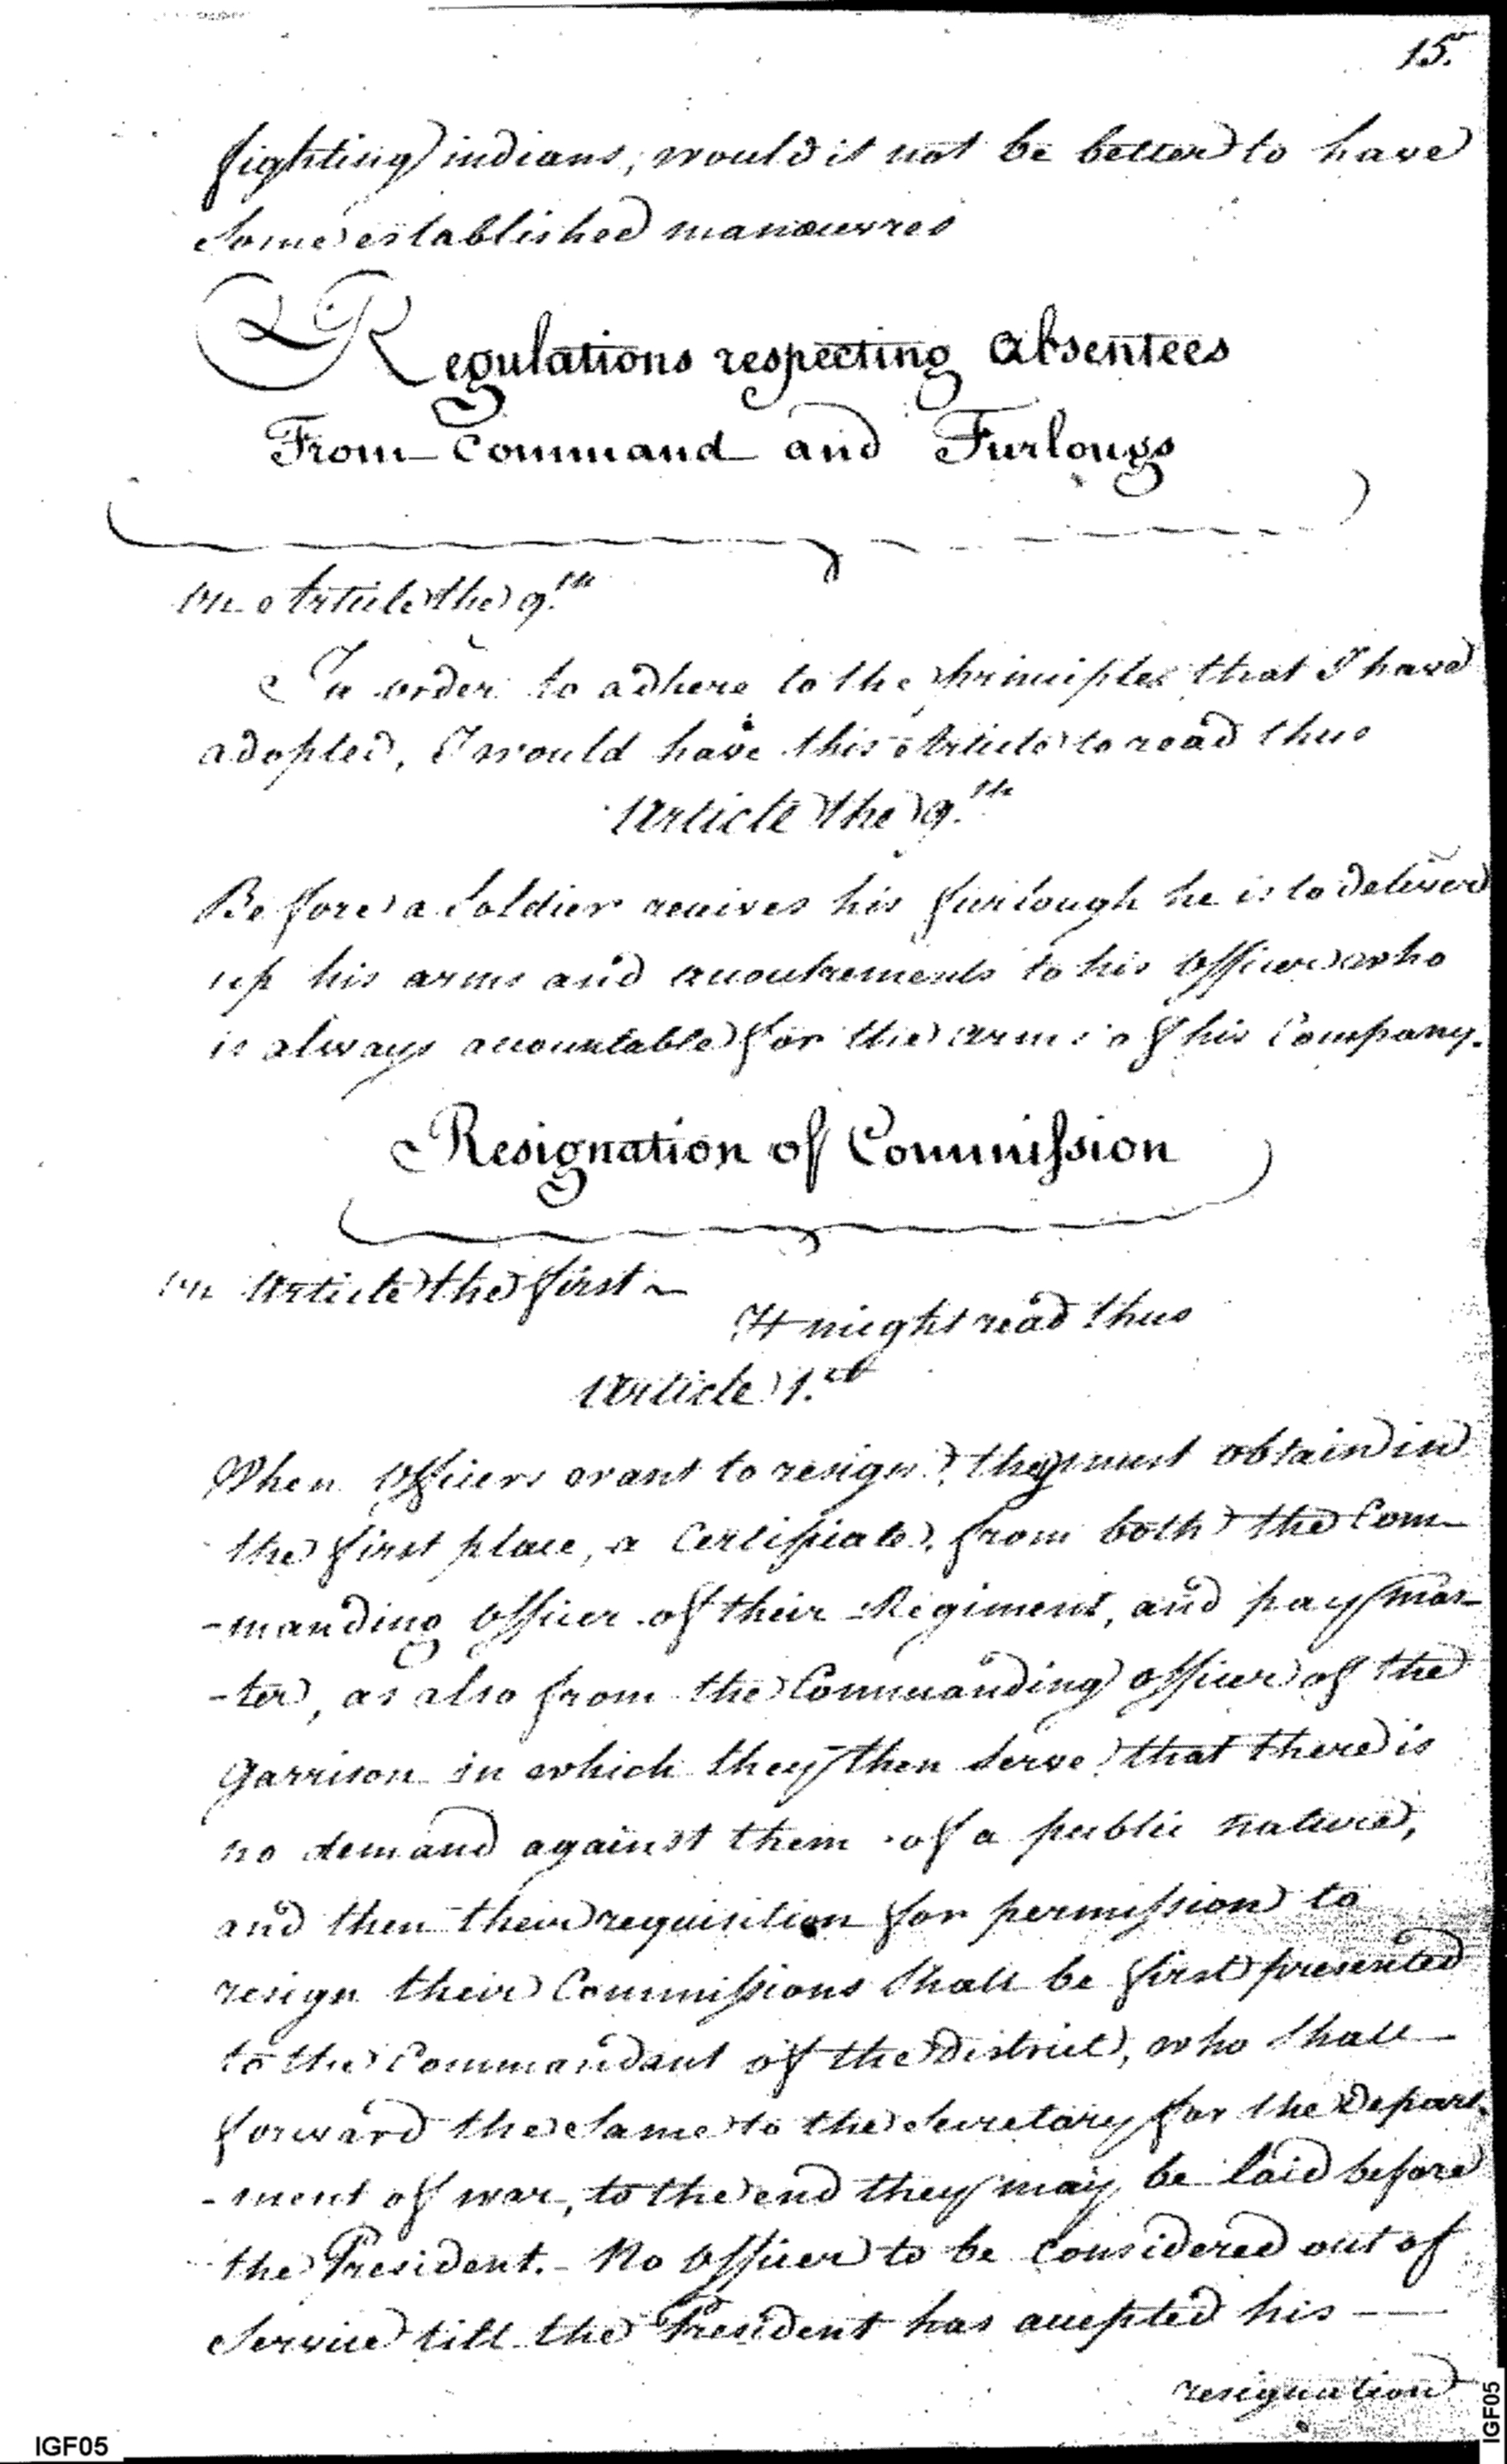 15.
fighting indians, would it not be better to have
Some established manœuvres
Regulations respecting Absentees
From Command and Furlougs
On Article the 9.th
In order to adhere to the principles that I have
adopted, I would have this Article to read thus
Article the 9.th
Before a Soldier receives his furlough he is to deliver
up his arms and accoutrements to his Officer who
is always accountable for the arms of his Company.
Resignation of Commission
On Article the first ~
It might read thus
Article 1.st
When Officers want to resign, they must obtain in
the first place, a Certificate, from both the Com-
-manding Officer of their Regiment, and pay mas-
-ter, as also from the Commanding Officer of the
Garrison in which they then Serve, that there is
no demand against them of a public nature,
and then their requisition for permission to
resign their Commissions Shall be first presented
to the Commandant of the District, who Shall
forward the Same to the Secretary for the Depart-
-ment of war, to the end they may be laid before
the President. - No Officer to be Considered out of
Service till the President has accepted his —
resignation
IGF05
IGF05